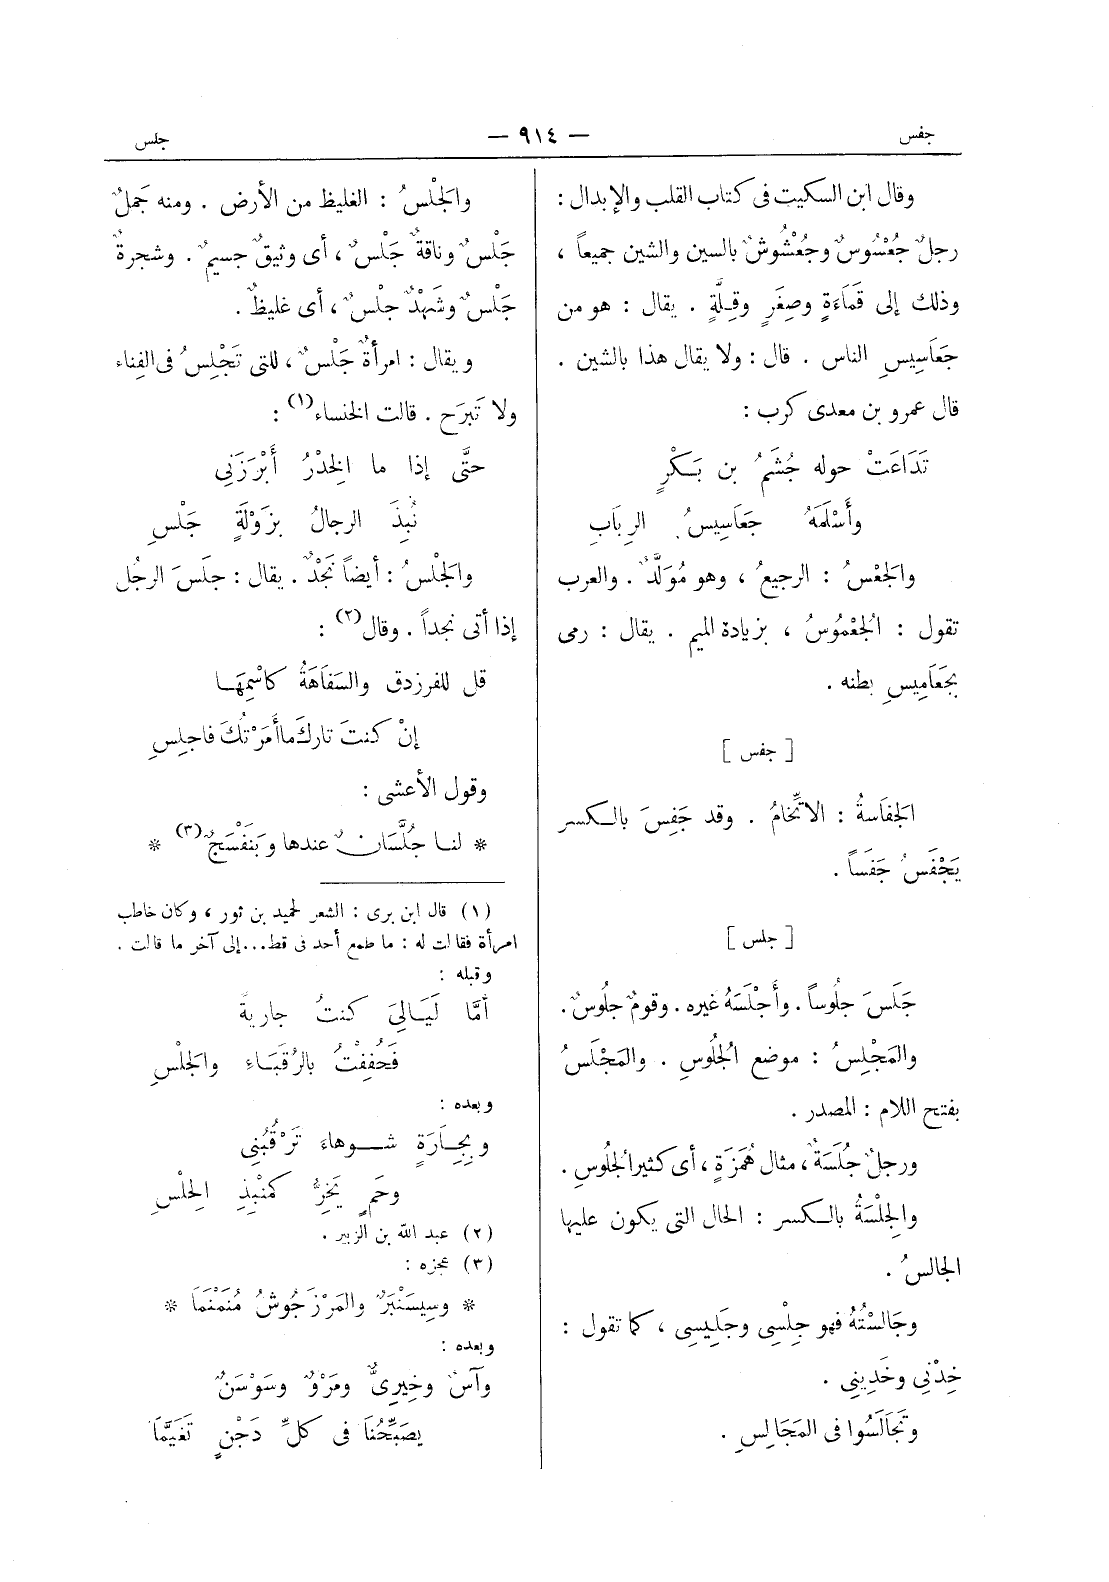 جفس
— ٩١٤ —
جلس
وقال ابن السكيت فى كتاب القلب والإبدال :
رجلٌ جُعْسُوسٌ وجُعْشُوشٌ بالسين والشين جميعاً ،
وذلك إلى قَمَاءَةٍ وصِغَرٍ وقِلَّةٍ . يقال : هو من
جَعَاسِيسِ الناس . قال : ولا يقال هذا بالشين .
قال عمرو بن معدى كرب :
تَدَاعَتْ حوله جُشَمُ بن بَكْرٍ
وأَسْلَمَهُ جَعَاسِيسُ الرِبَابِ
والجَعْسُ : الرجيعُ ، وهو مُوَلَّدٌ . والعرب
تقول : الجُعْمُوسُ ، بزيادة الميم . يقال : رمى
بجَعَامِيسِ بطنه .
[ جفس ]
الجَفَاسةُ : الاتِّخَامُ . وقد جَفِسَ بالكسر
يَجْفَسُ جَفَساً .
[ جلس ]
جَلَسَ جلُوساً . وأَجْلَسَهُ غيره . وقومٌ جلُوسٌ .
والمَجْلِسُ : موضع الجُلُوسِ . والمَجْلَسُ
بفتح اللام : المصدر .
ورجلٌ جُلَسَةٌ ، مثال هُمَزَةٍ ، أى كثير الجُلُوسِ .
والجِلْسَةُ بالكسر : الحال التى يكون عليها
الجالسُ .
وجَالَسْتُهُ فهو جِلْسِى وجَلِيسِى ، كما تقول :
خِدْنِى وخَدِينِى .
وتَجَالَسُوا فى المَجَالِسِ .
والجَلْسُ : الغليظ من الأرض . ومنه جَملٌ
جَلْسٌ وناقةٌ جَلْسٌ ، أى وثيقٌ جسيمٌ . وشجرةٌ
جَلْسٌ وشَهْدٌ جلْسٌ ، أى غليظٌ .
ويقال : امرأةٌ جَلْسٌ ، للتى تَجْلِسُ فى الفِناء
ولا تَبرَح . قالت الخنساء (١) :
حتَّى إذا ما الخِدْرُ أَبْرَزَنِى
نُبِذَ الرجالُ بزَوْلَةٍ جَلْسِ
والجَلْسُ : أيضاً نَجْدٌ . يقال : جلَسَ الرجُل
إذا أتى نجداً . وقال (٢) :
قل للفرزدق والسَفَاهَةُ كاسْمِهَا
إنْ كنتَ تارِكَ ما أَمَرْتُكَ فاجلِسِ
وقول الأعشى :
* لنا جُلَّسَانٌ عندها وبَنَفْسَجٌ (٣) *
(١) قال ابن برى : الشعر لحميد بن ثور ، وكان خاطب
امرأة فقالت له : ما طمع أحد فى قط ... إلى آخر ما قالت .
وقبله :
أمَّا لَيَالِىَ كنتُ جاريةً
فَحُفِفْتُ بالرُقَبَاءِ والجَلْسِ
وبعده :
وبِجَارَةٍ شوهاءَ تَرْقُبُنِى
وحَمٍ يَخِرُّ كَمَنْبِذِ الحِلْسِ
(٢) عبد الله بن الزبير .
(٣) عجزه :
* وسِيسَنْبَرٌ والمَرْزَجُوشُ مُنَمْنَمَا *
وبعده :
وآسٌ وخِيرِىٌّ ومَرْوٌ وسَوْسَنٌ
يصَبِّحُنَا فى كلِّ دَجْنٍ تَغَيَّمَا